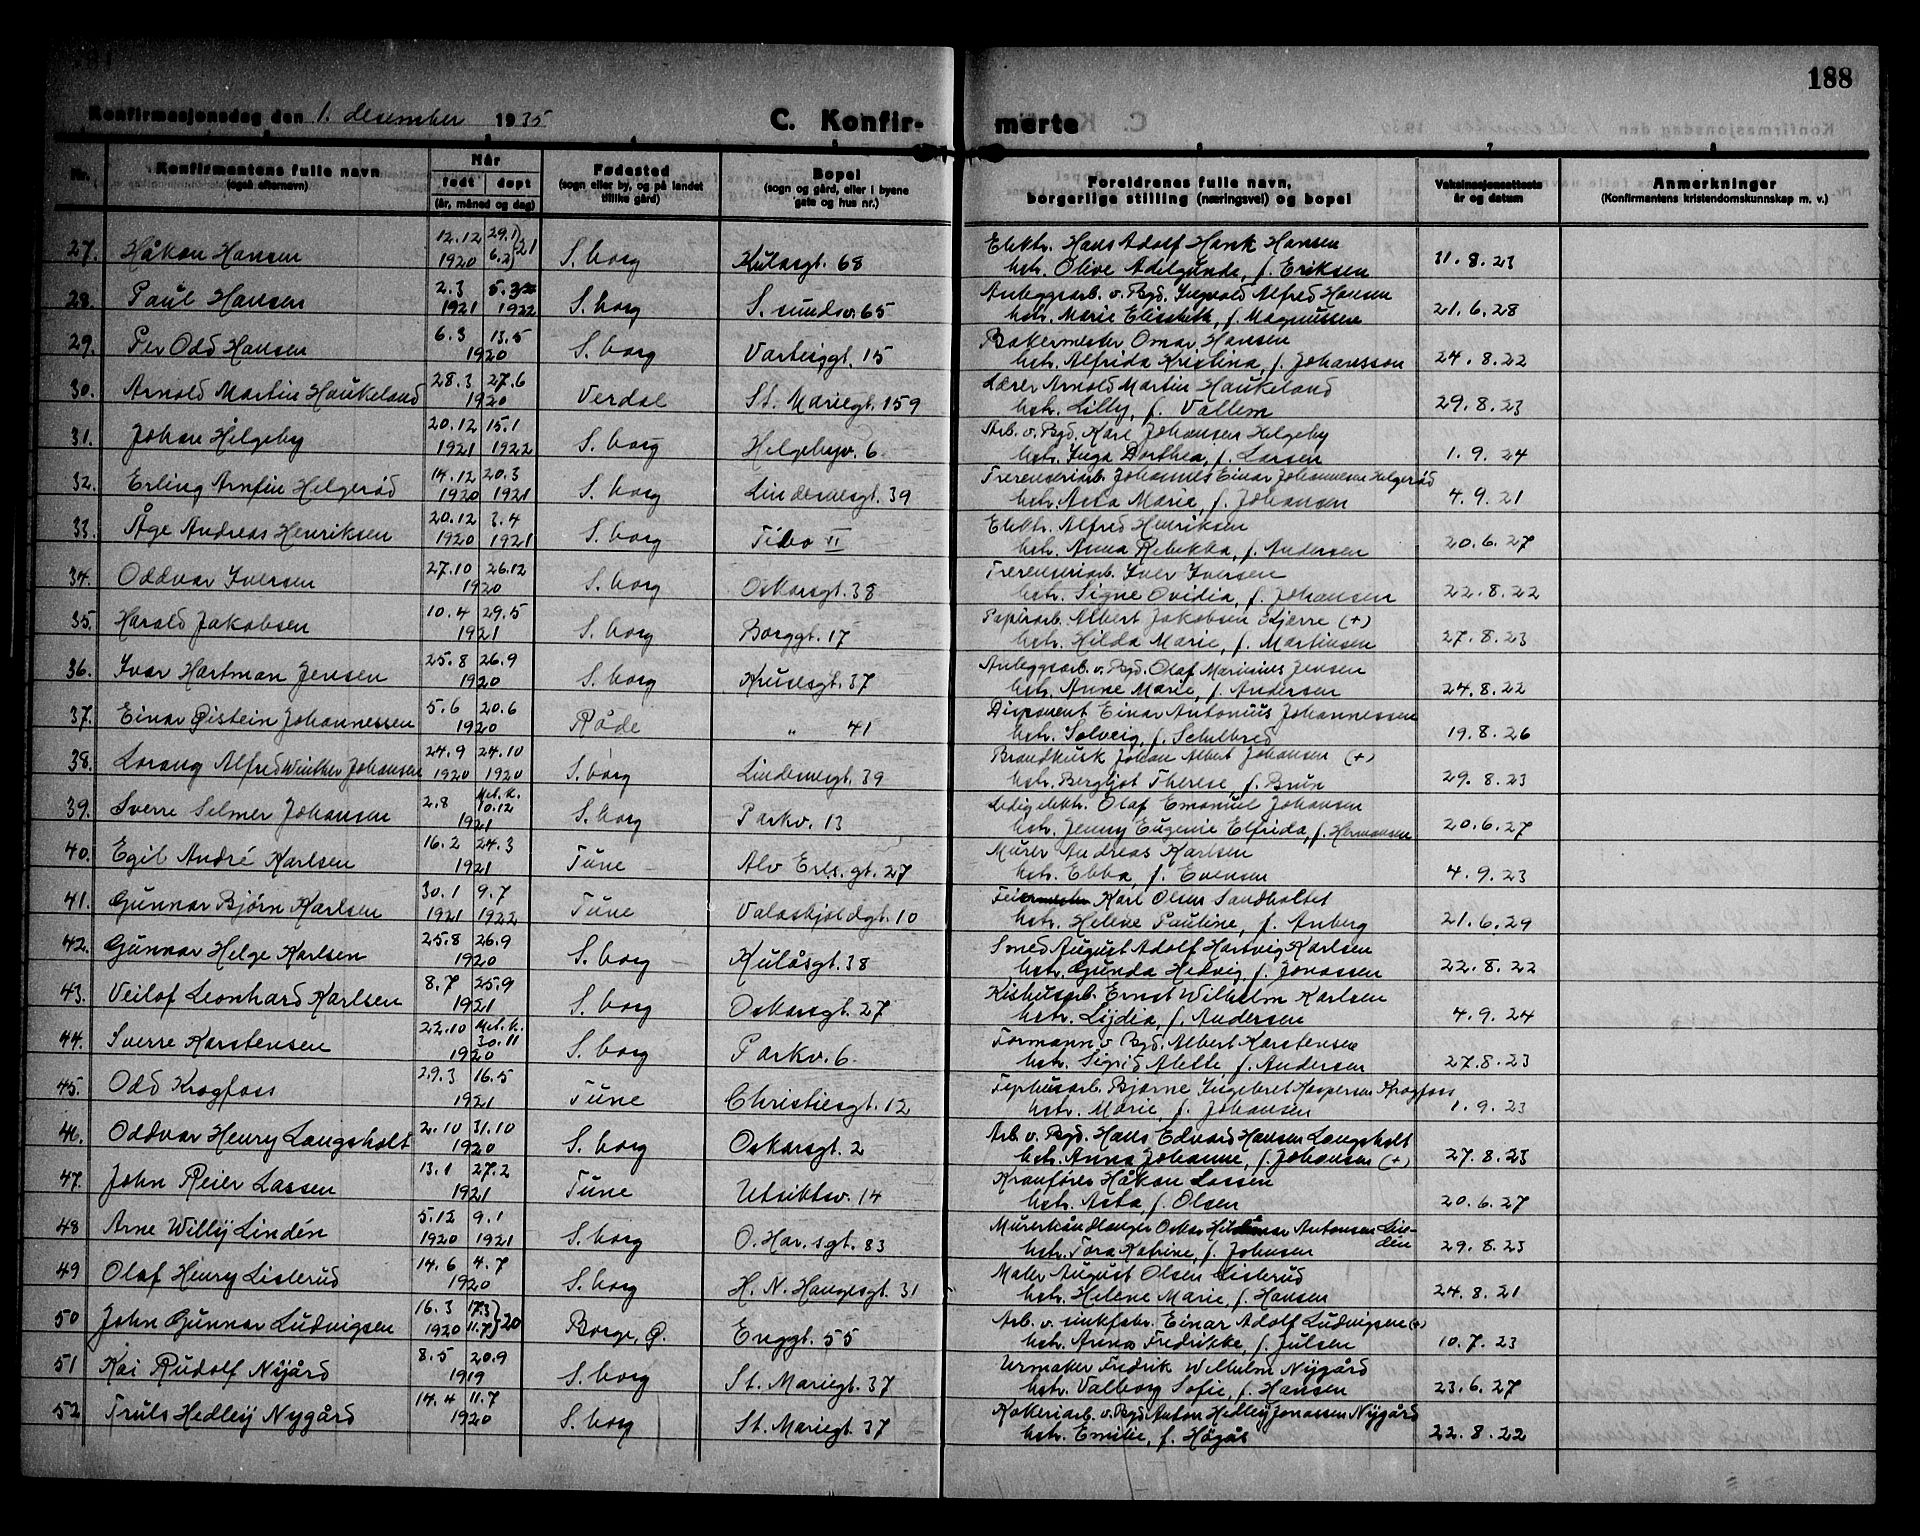 188
Konfirmasjonsdag den 1. desember 1935 C. Konfir- merte
Nr. Konfirmantens fulle navn (også efternavn) Når født døpt (år, måned og dag) Fødested (sogn eller by, og på landet tillike gård) Bopel (sogn og gård, eller i byene gate og hus nr.) Foreldrenes fulle navn, borgerlige stilling (næringsvei) og bopel Vaksinasjonsattests år og datum Anmerkninger (Konfirmantens kristendomskunnskap m. v.)
27. Håkon Hansen 12.12 1920 29.1) 6.2) 21 S. borg Kulåsgt. 68 Elektr. Hans Adolf Hank Hansen
hstr. Olive Adelgunde, f. Eriksen 31.8.23
28. Paul Hansen 2.3 1921 5.3 1922 S. borg S. sundsv. 65 Anleggsarb. v. Byg. Ingvald Alfred Hansen
hstr. Marie Elisabeth, f. Magnussen 21.6.28
29. Per Odd Hansen 6.3 13.5 1920 S. borg Varteiggt. 15 Bakermester Omar Hansen
hstr. Alfrida Kristina, f. Johansson 24.8.22
30. Arnold Martin Haukeland 28.3 27.6 1920 Verdal St. Mariegt. 159 Lærer Arnold Martin Haukeland
hstr. Lilly, f. Vallem 29.8.23
31. Johan Helgeby 20.12 1921 15.1 1922 S. borg Helgebyv. 6 Arb. v. Byg. Karl Johansen Helgeby
hstr. Inga Dorthea, f. Larsen 1.9.24
32. Erling Arnfin Helgerød 14.12 1920 20.3 1921 S. borg Lindemesgt. 39 Johannes Einar Johannesen Helgerød
hstr. Asta Marie, f. Johansen 4.9.21
33. Åge Andreas Henriksen 20.12 1920 3.4 1921 S. borg Tibo II Elektr. Alfred Henriksen
hstr. Anna Rebekka, f. Andersen 20.6.27
34. Oddvar Iversen 27.10 26.12 1920 S. borg Oskarsgt. 38 Iver Iversen
hstr. Signe Ovidia, f. Johansen 22.8.22
35. Harald Jakobsen 10.4 29.5 1921 S. borg Borggt. 17 Papirarb. Albert Jakobsen (+)
hstr. Hilda Marie, f. Martinsen 27.8.23
36. Ivar Hartman Jensen 25.8 26.9 1920 S. borg Krusesgt. 37 Anleggsarb. v. Byd. Olaf Marinius Jensen
hstr. Anne Marie, f. Andersen 24.8.22
37. Einar Øistein Johannessen 5.6 20.6 1920 Råde " 41 Disponent Einar Antonius Johannessen
hstr. Solveig, f. Schelbred 19.8.26
38. Lorang Alfred Winther Johansen 24.9 1920 24.10 1920 S. borg Lindemesgt. 39 Brandkusk Johan Albert Johansen (+)
hstr. Bergljot Therese, f. Brun 29.8.23
39. Sverre Selmer Johansen 2.8 Met. k. 10.12 1921 S. borg Parkv. 13 Ledig elektr. Olaf Emanuel Johansen
hstr. Jenny Eugenie Elfrida, f. Hermansen 20.6.27
40. Egil André Karlsen 16.2 24.3 1921 Tune Alv Erls. gt. 27 Murer Andreas Karlsen
hstr. Ebba, f. Evensen 4.9.23
41. Gunnar Bjørn Karlsen 30.1 1921 9.7 1922 Tune Valaskjoldgt. 10 Karl Olsen Sandholtet
hstr. Helene Pauline, f. Anberg 21.6.29
42. Gunnar Helge Karlsen 25.8 26.9 1920 S. borg Kulåsgt. 38 Smed August Adolf Hartvig Karlsen
hstr. Gunda Hedvig, f. Jonassen 22.8.22
43. Veilof Leonhard Karlsen 8.7 25.9 1921 S. borg Oskarsgt. 27 Kishusarb. Ernst Wilhelm Karlsen
hstr. Lydia, f. Andersen 4.9.24
44. Sverre Karstensen 22.10 Met. k. 30.11 1920 S. borg Parkv. 6 Formann v. Byd. Albert Karstensen
hstr. Sigrid Alette, f. Andersen 27.8.23
45. Odd Krogfoss 29.3 16.5 1921 Tune Christiesgt. 12 Bjarne Ingebret Kaspersen Krogfoss
hstr. Marie, f. Johansen 1.9.23
46. Oddvar Henry Langsholt 2.10 31.10 1920 S. borg Oskarsgt. 2 Arb. v. Byd. Hans Edvard Hansen Langsholt
hstr. Anna Johanne, f. Johansen (+) 27.8.23
47. John Reier Lassen 13.1 27.2 1921 Tune Utsiktsv. 14 Kranfører Håkon Lassen
hstr. Asta, f. Olsen 20.6.27
48 Arne Willy Lindén 5.12 1920 9.1 1921 S. borg O. Har. sgt. 83 Murerhåndlanger Oskar Hildmar Antonsen Lin-
den
hstr. Tora Katrine, f. Johnsen 29.8.23
49 Olaf Henry Listerud 14.6 4.7 1920 S. borg H. N. Haugesgt. 31 Maler August Olsen Listerud
hstr. Helene Marie, f. Hansen 24.8.21
50 John Gunnar Ludvigsen 16.3 1920 17.3 11.7 } 20 Borge, Ø. Enggt. 55 Arb. v. sinkfabr. Einar Adolf Ludvigsen (+)
hstr. Anna Fredrikke, f. Julsen 10.7.23
51 Kai Rudolf Nygård 8.5 20.9 1919 S. borg St. Mariegt. 37 Urmaker Fredrik Wilhelm Nygård
hstr. Valborg Sofie, f. Hansen 23.6.27
52 Truls Hedley Nygård 14.4 11.7 1920 S. borg St. Mariegt. 37 Kokeriarb. v. Byd. Anton Hedley Jonassen Nygård
hstr. Emilie, f. Högås 22.8.22